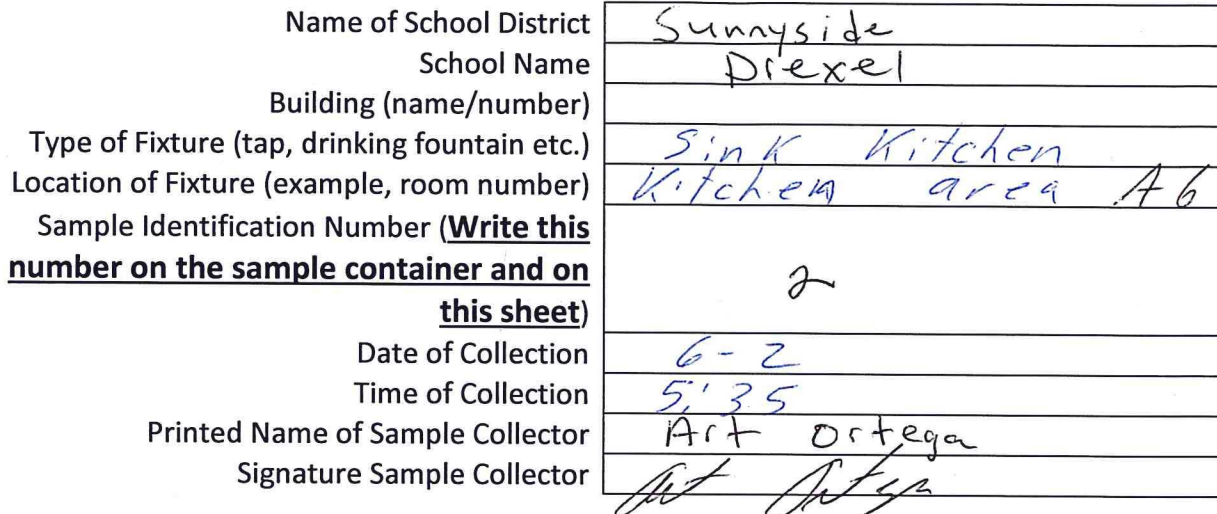 Name of School District Sunnyside
School Name Drexel
Building (name/number)
Type of Fixture (tap, drinking fountain etc.) Sink Kitchen
Location of Fixture (example, room number) Kitchen area A6
Sample Identification Number (Write this
number on the sample container and on
this sheet) 2
Date of Collection 6-2
Time of Collection 5:35
Printed Name of Sample Collector Art Ortega
Signature Sample Collector Art Ortega